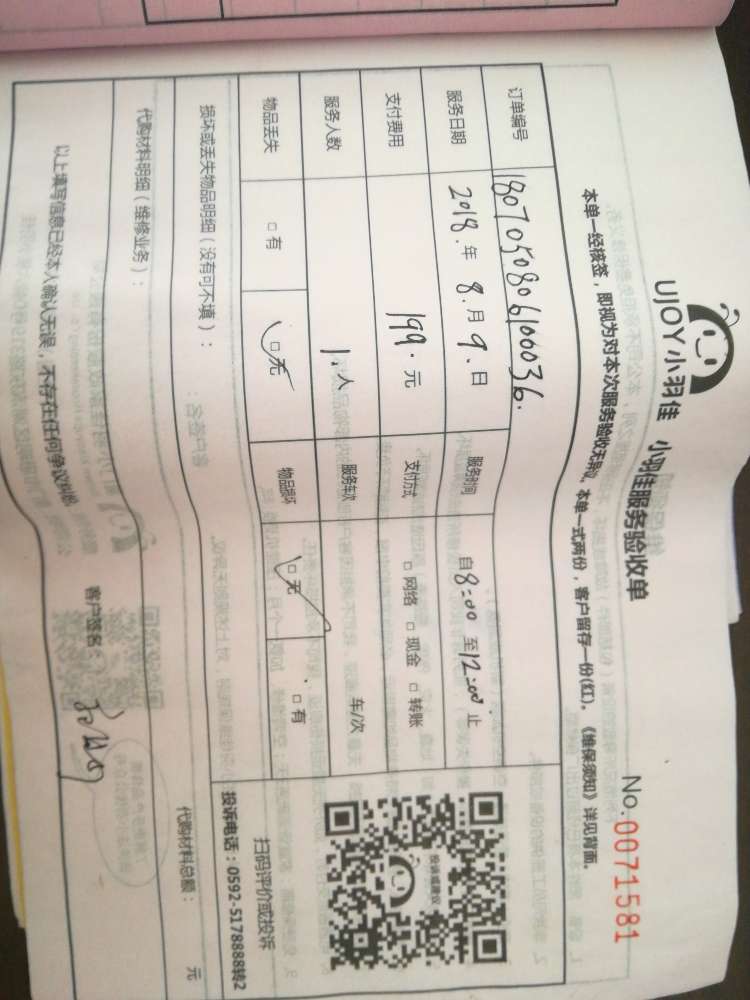 UJOY小羽佳 小羽佳服务验收单
No.0071581
本单一经核签，即视为对本次服务验收无异议。本单一式两份，客户留存一份(红)。《维保须知》详见背面。
订单编号 1807050806100036.
服务日期 2018.年 8.月 9.日 服务时间 自8:00 至12:00 止
支付费用 199.元 支付方式 □网络 □现金 □转账
服务人数 1.人 服务车次 车/次
物品丢失 □有 □无 物品损坏 □无 □有
投诉或建议
扫码评价或投诉
投诉电话：0592-5178888转2
损坏或丢失物品明细（没有可不填）：
代购材料明细（维修业务）： 代购材料总额： 元
以上填写信息已经本人确认无误，不存在任何争议纠纷 客户签名：